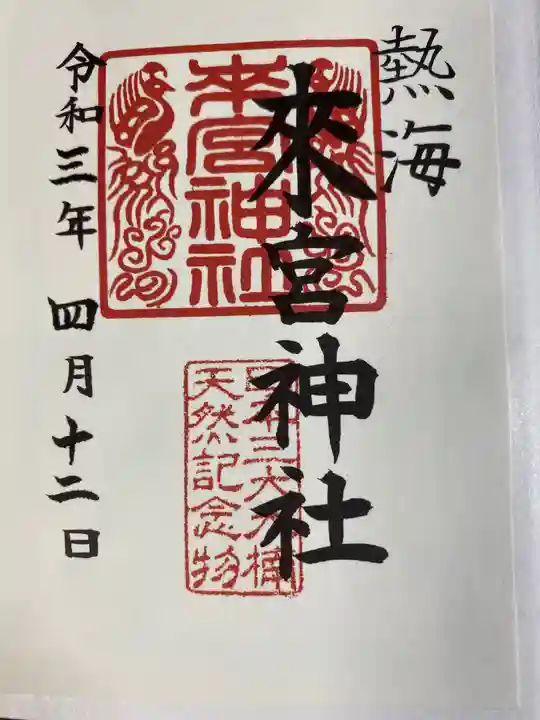 熱海
來宮神社
令和三年 四月十二日
來宮神社
日本三大大楠
天然記念物